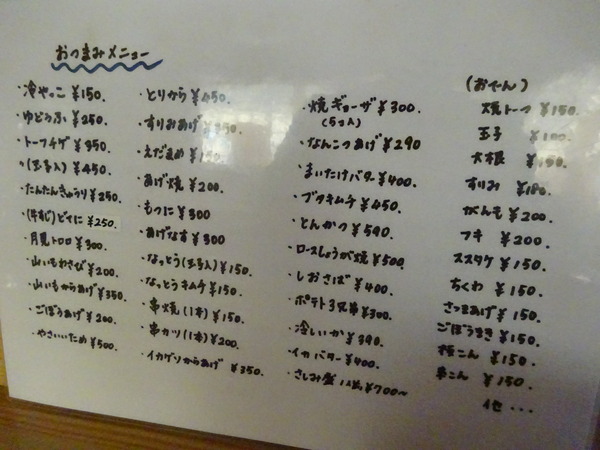 おつまみメニュー
・冷やっこ ¥150.
・ゆどうふ ¥250.
・トーフチゲ ¥350.
・(玉子入) ¥450.
・たんたんきゅうり ¥250.
・(牛すじ)どてに ¥250.
・月見トロロ ¥300.
・山いもわさび ¥200.
・山いもからあげ ¥350.
・ごぼうあげ ¥200.
・やさいいため ¥500.
・とりから ¥450.
・すりおあげ
・えだまめ
・あげ焼 ¥200.
・もつに ¥300
・あげなす ¥300
・なっとう(玉子入) ¥150.
・なっとうキムチ ¥150.
・串焼(1本) ¥150.
・串カツ(1本) ¥200.
・イカゲソからあげ ¥350.
・焼ギョーザ ¥300.
(5コ入)
・なんこつあげ ¥290
・まいたけバター ¥400.
・ブタキムチ ¥450.
・とんかつ ¥590.
・ロースしょうが焼 ¥500.
・しおさば ¥400.
・ポテト3兄弟 ¥300.
・冷しいか ¥390.
・イカバター ¥400.
・さしみ盛 ¥700〜
(おでん)
焼トーフ ¥150.
玉子 ¥100.
大根 ¥150.
すりみ ¥180.
がんも ¥200.
フキ ¥200.
ススタケ ¥150.
ちくわ ¥150.
さつまあげ ¥150.
ごぼうまき ¥150.
板こん ¥150.
糸こん ¥150.
他・・・